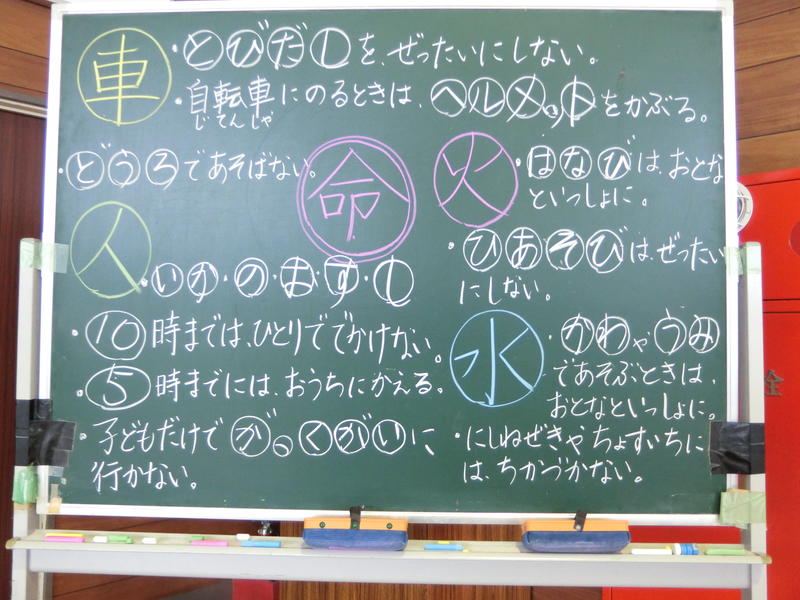 車
・とびだしを、ぜったいにしない。
・自転車にのるときは、ヘルメットをかぶる。
じてんしゃ
・どうろであそばない。
命
火
・はなびは、おとな
といっしょに。
・ひあそびは、ぜったい
にしない。
人
・いか・の・お・す・し
・10時までは、ひとりででかけない。
・5時までには、おうちにかえる。
・子どもだけでがっくがいに
行かない。
水
・かわやうみ
であそぶときは、
おとなといっしょに。
・にしねぜきやちょすいちに
は、ちかづかない。
全